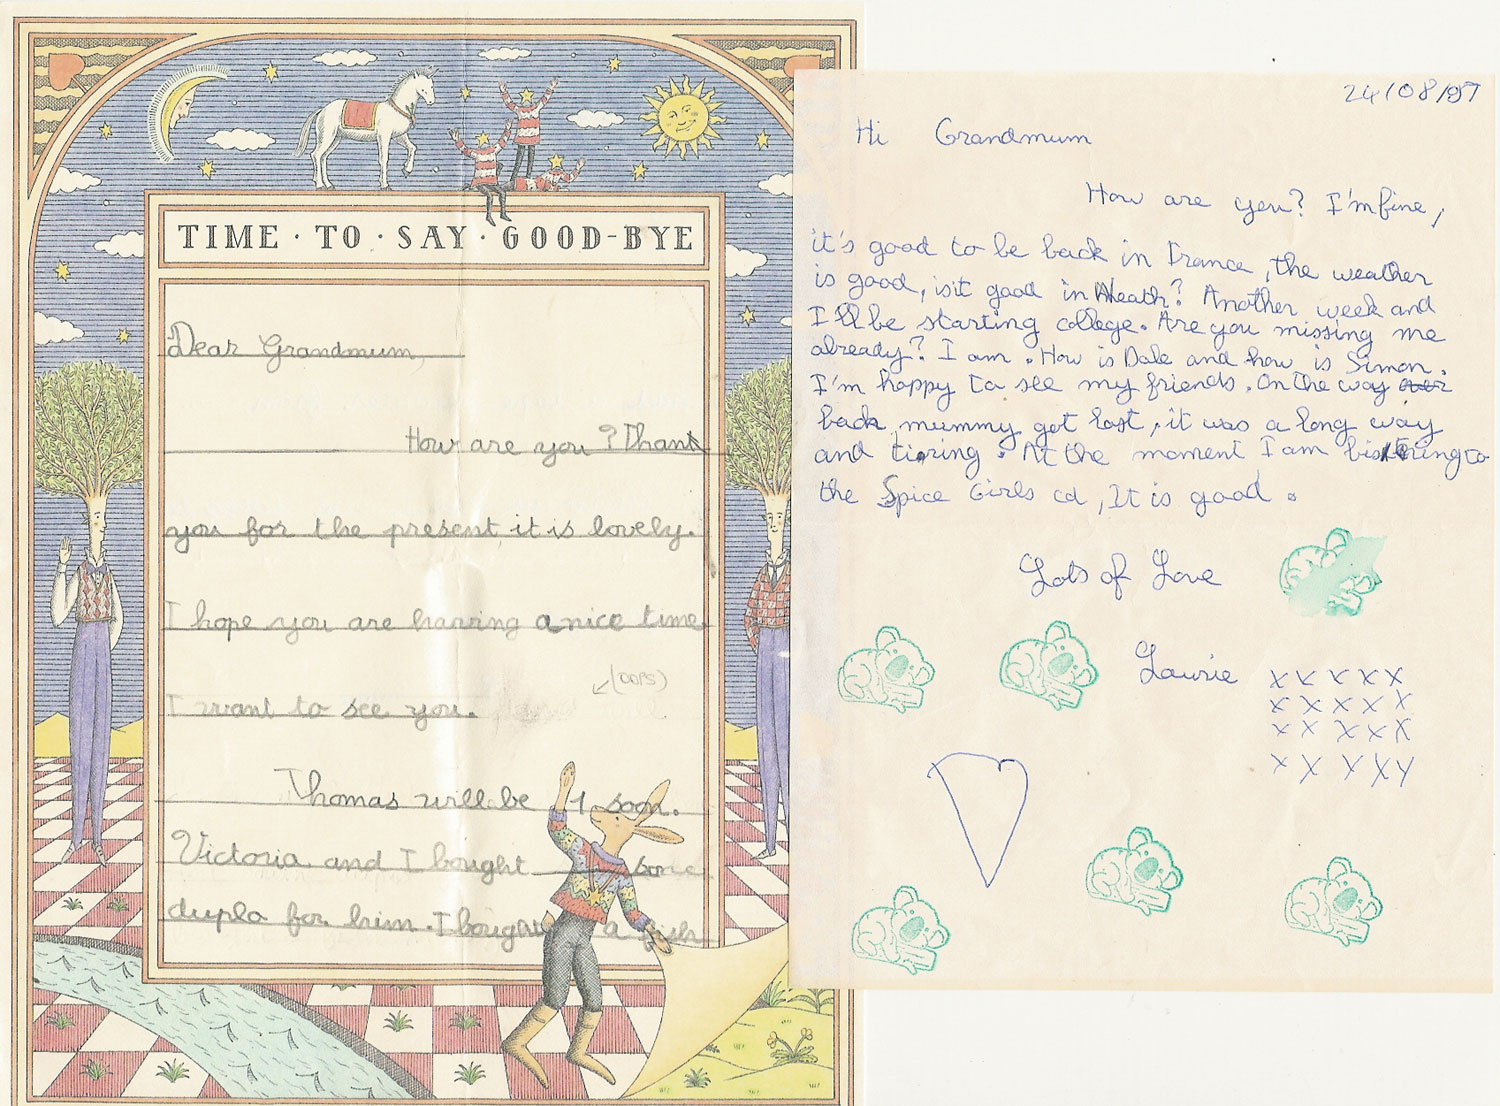 TIME · TO · SAY · GOOD-BYE
Dear Grandmum,
How are you? Thank
you for the present, it is lovely.
I hope you are having a nice time
(OOPS)
I want to see you.
Thomas will be 1 soon.
Victoria and I bought some
duplo for him. I bought a fish
24/08/97
Hi Grandmum
How are you? I'm fine,
it's good to be back in France, the weather
is good, is it good in Heath? Another week and
I'll be starting college. Are you missing me
already? I am. How is Dale and how is Simon.
I'm happy to see my friends. On the way over
back mummy got lost, it was a long way
and tioring. At the moment I am listening to
the Spice Girls cd, It is good.
Lots of Love
Laurie
x x x x x
x x x x x
x x x x x
x x x x y